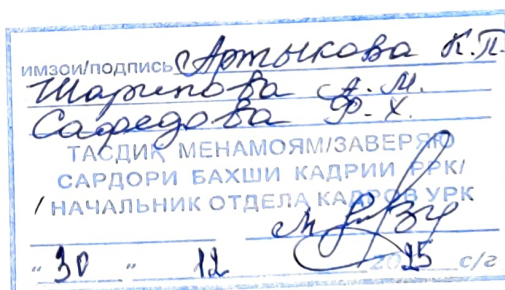 имзои/подпись Артыкова К.П.
Шарипова А.М.
Сафедова Ф.Х.
ТАСДИҚ МЕНАМОЯМ/ЗАВЕРЯЮ
САРДОРИ БАХШИ КАДРИИ РРК/
/ НАЧАЛЬНИК ОТДЕЛА КАДРОВ УРК
"30" 12 2025 с/г